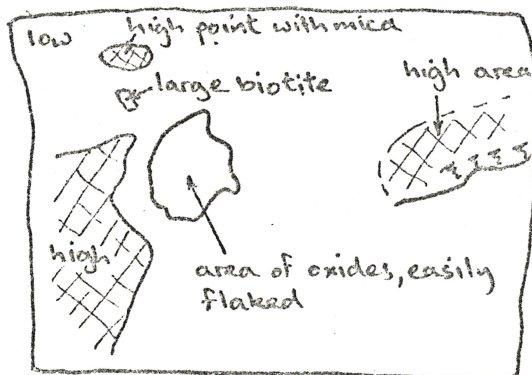 low
high point with mica
large biotite
high area
high
area of oxides, easily
flaked